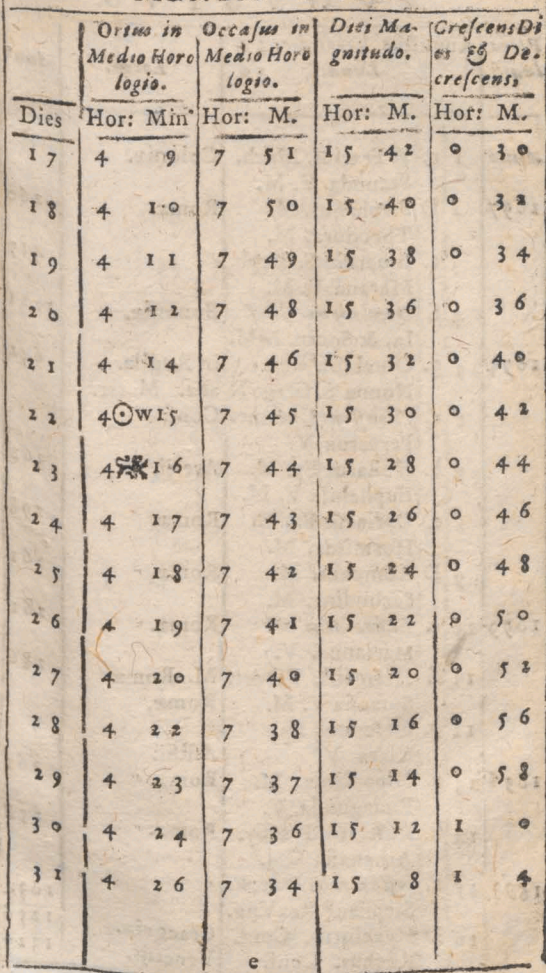 Ortus in Medio Horo logio. Occaſus in Medio Horo logio. Diei Ma- gnitudo. CreſcensDi es & De- creſcens,
Dies Hor: Min Hor: M. Hor: M. Hor: M.
17 4 9 7 51 15 42 0 30
18 4 10 7 50 15 40 0 32
19 4 11 7 49 15 38 0 34
20 4 12 7 48 15 36 0 36
21 4 14 7 46 15 32 0 40
22 4☉W15 7 45 15 30 0 42
23 4 16 7 44 15 28 0 44
24 4 17 7 43 15 26 0 46
25 4 18 7 42 15 24 0 48
26 4 19 7 41 15 22 0 50
27 4 20 7 40 15 20 0 52
28 4 22 7 38 15 16 0 56
29 4 23 7 37 15 14 0 58
30 4 24 7 36 15 12 1 0
31 4 26 7 34 15 8 1 4
e